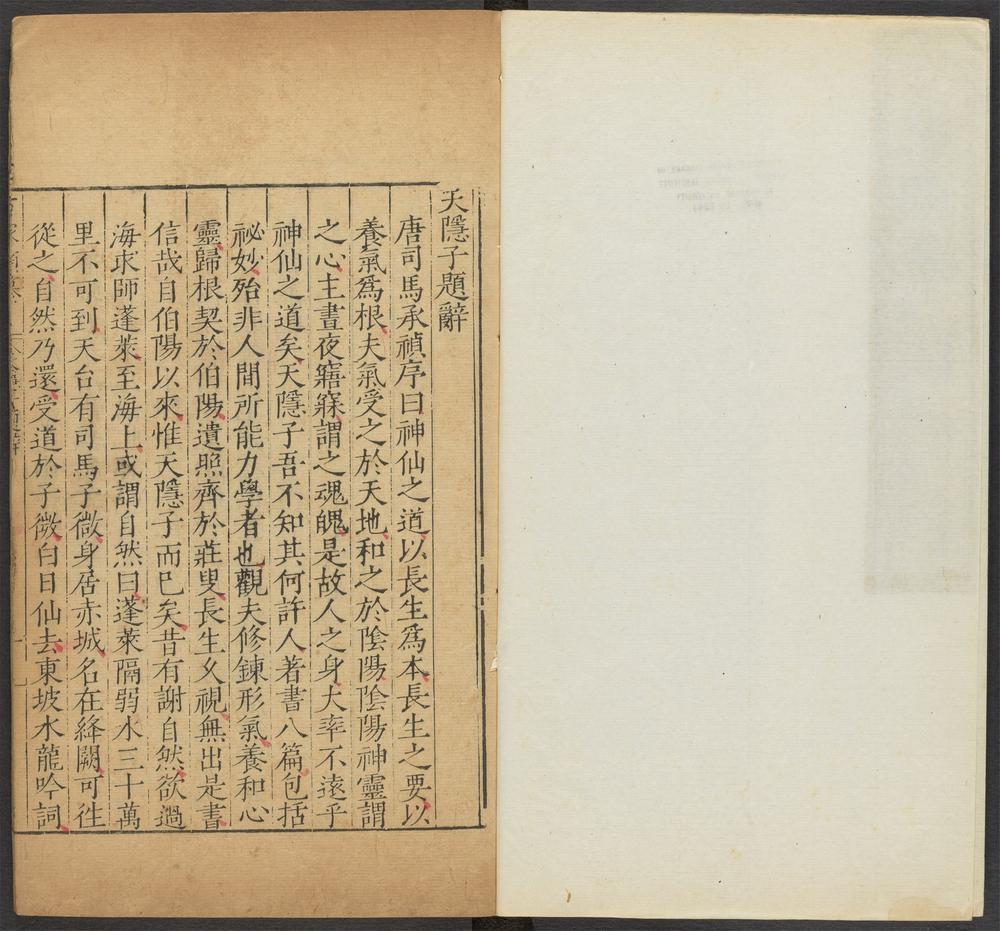 天隱子題辭
唐司馬承禎序曰神仙之道以長生爲本長生之要以
養氣爲根夫氣受之於天地和之於陰陽陰陽神靈謂
之心主晝夜寤寐謂之魂魄是故人之身大率不遠乎
神仙之道矣天隱子吾不知其何許人著書八篇包括
祕妙殆非人間所能力學者也觀夫修鍊形氣養和心
靈歸根契於伯陽遺照齊於莊叟長生久視無出是書
信哉自伯陽以來惟天隱子而已矣昔有謝自然欲過
海求師蓬萊至海上或謂自然曰蓬萊隔弱水三十萬
里不可到天台有司馬子微身居赤城名在絳闕可往
從之自然乃還受道於子微白日仙去東坡水龍吟詞